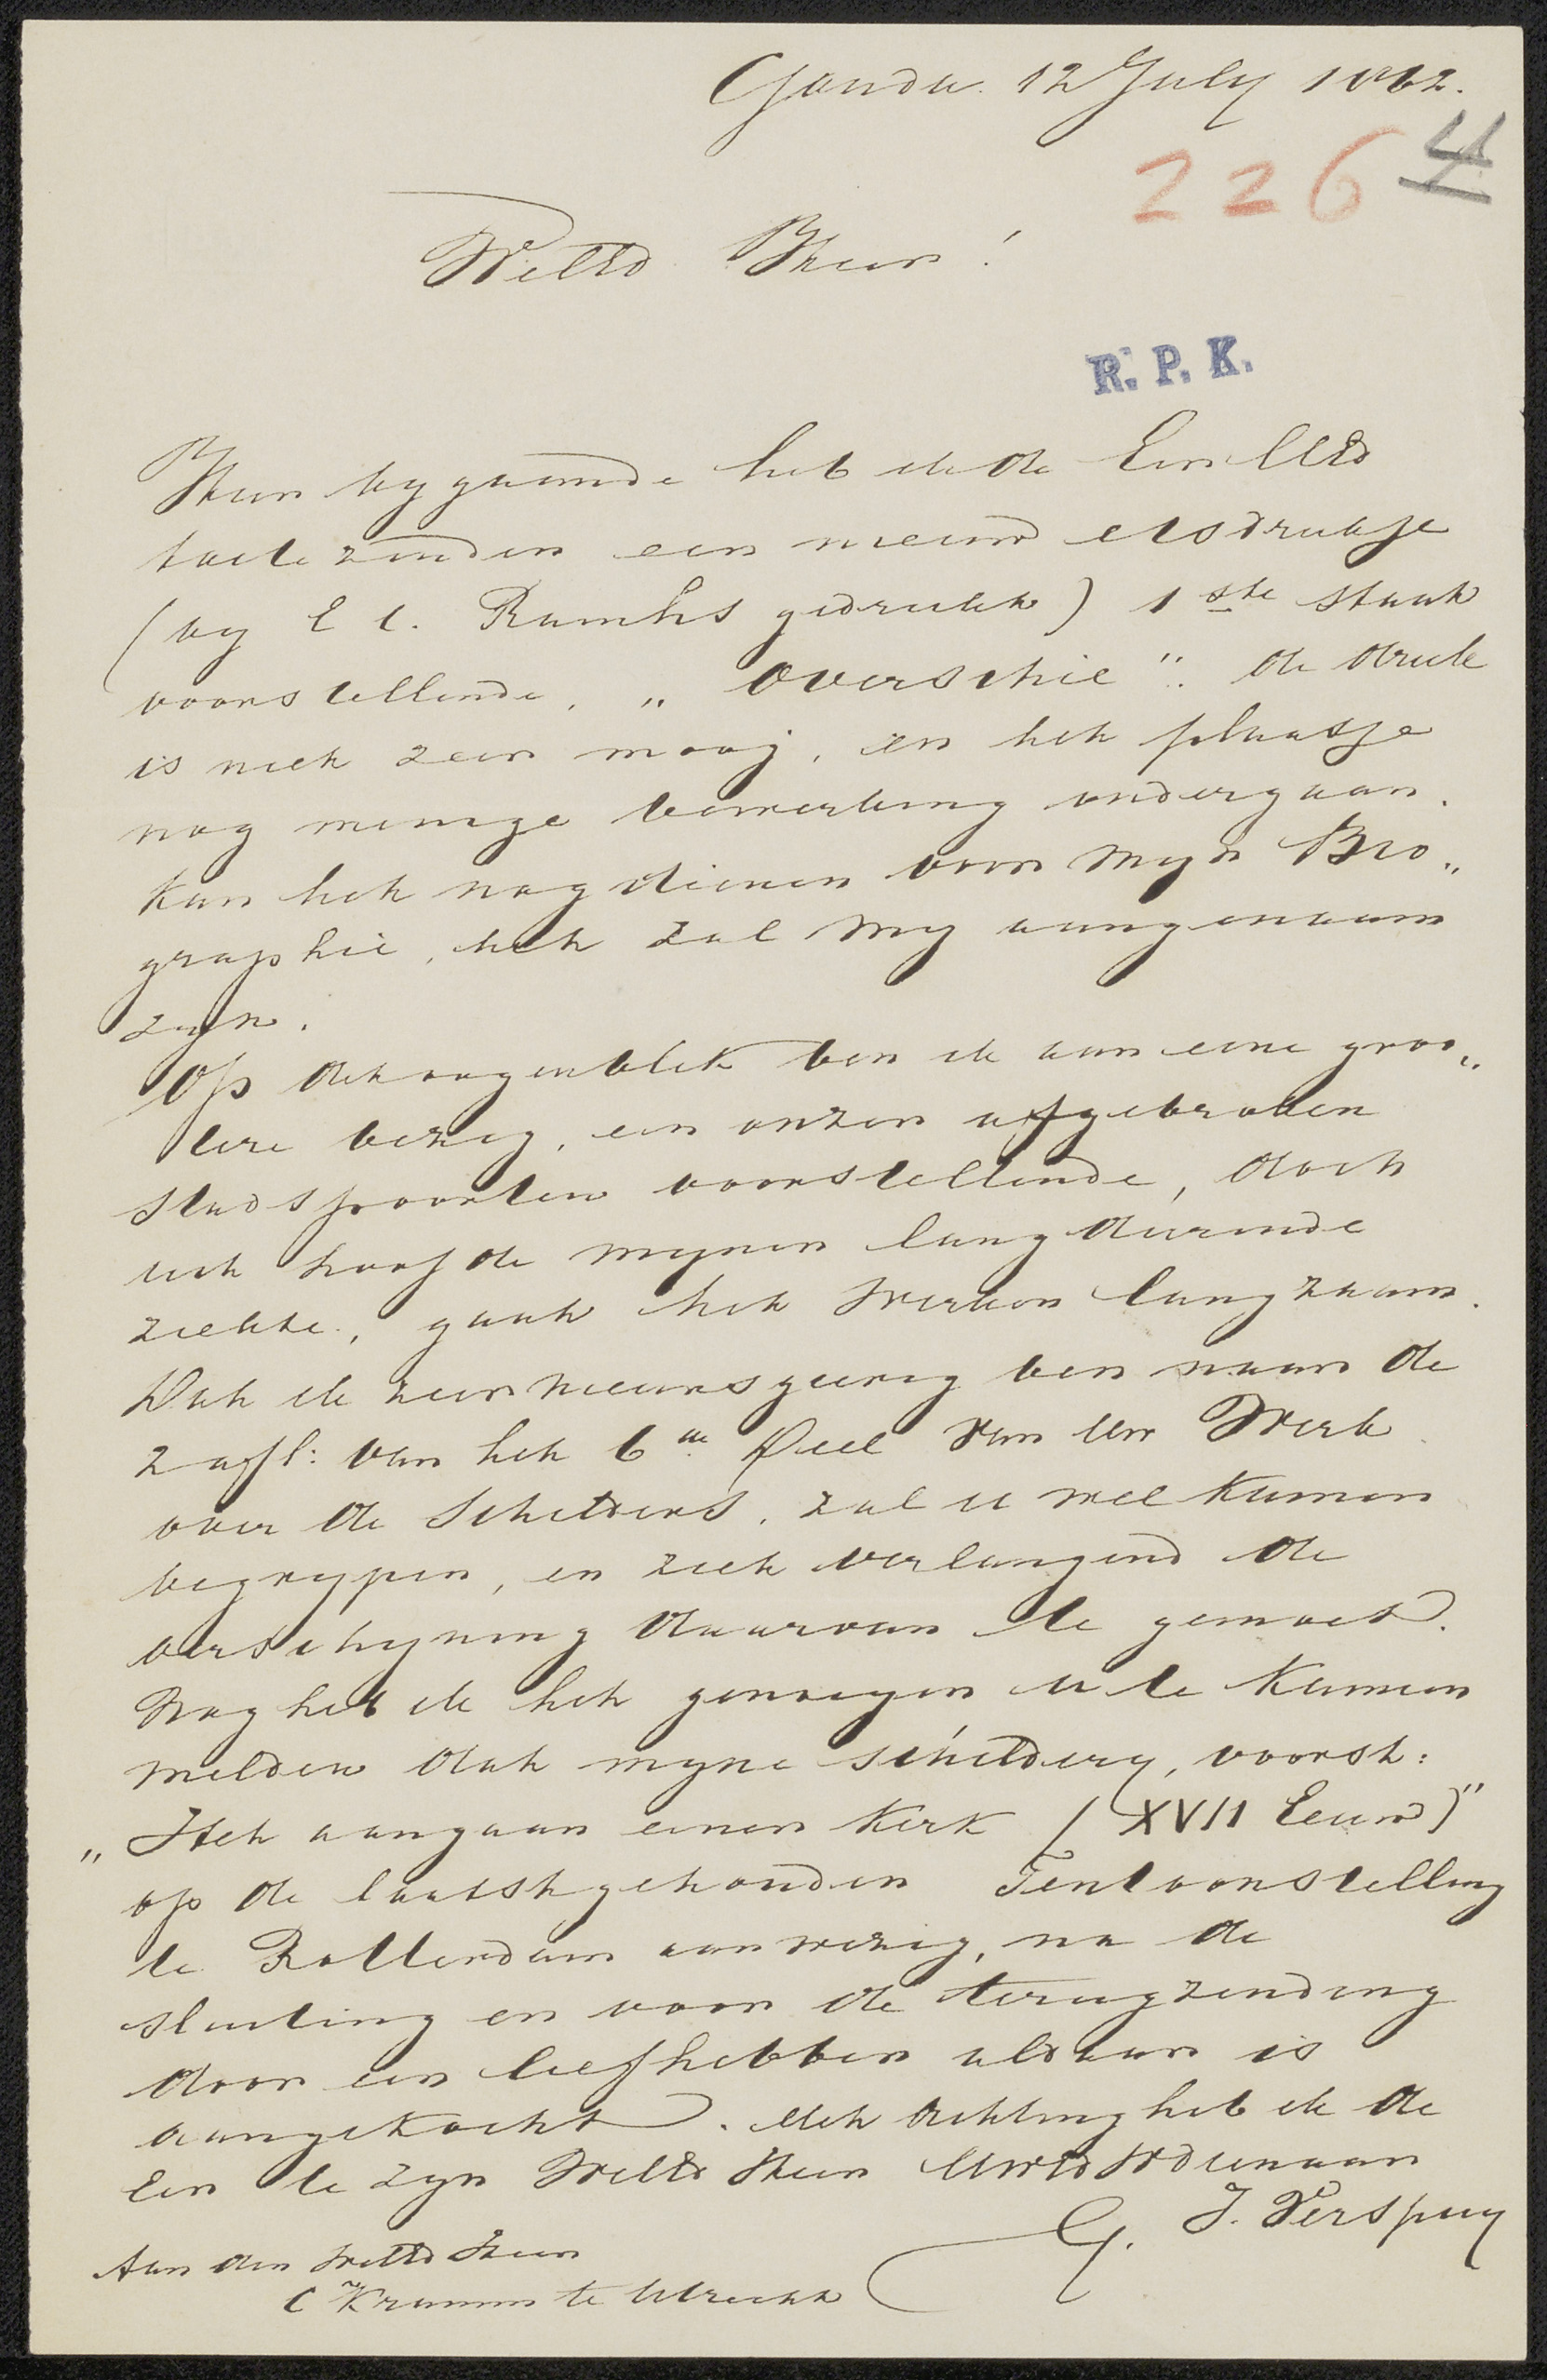 Gouda. 12 July 1862.
226 4
WelEd Heer!
R. P. K.
Heer bygaande heb ik de Eer UEd
toe te zenden een nieuw etsdrukje
(by E C. Ramhs gedrukt) 1ste staat
voorstellende, „Overschie". de druk
is niet zeer mooj, en het plaatje
nog menige bewerking ondergaan.
Kan het nog dienen voor Myn Bio„
graphie, het zal my aangenaam
zyn.
Op dit oogenblik ben ik aan eene groo„
tere bezig, een onzer afgebroken
Stadspoorten voorstellende, doch
uit hoofde mynen langdurende
ziekte, gaat het werken langzaam.
Dat ik zeer nieuwsgierig ben naar de
2 afl: van het 6de Deel van Uw Werk
over de Schilders, zal u wel kunnen
begrypen, en ziet verlangend de
verschyning daarvan te gemoed.
Nog heb ik het genoegen u te kunnen
melden dat myne schildery, voorst:
„Het aangaan eener Kerk (XVII Eeuw)"
op de laatstgehouden Tentoonstelling
te Rotterdam aanwezig, na de
sluiting en voor de terugzending
door een liefhebber aldaar is
aangekocht. Met Achting heb ik de
Eer te zyn WelEd Heer UwEd WDienaar
G. J. Verspuy
Aan den WelEd Heer
C Kramm te Utrecht